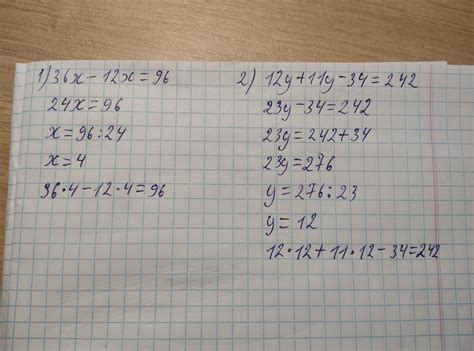 1) 36x - 12x = 96
24x = 96
x = 96 : 24
x = 4
36 · 4 - 12 · 4 = 96
2) 12y + 11y - 34 = 242
23y - 34 = 242
23y = 242 + 34
23y = 276
y = 276 : 23
y = 12
12 · 12 + 11 · 12 - 34 = 242